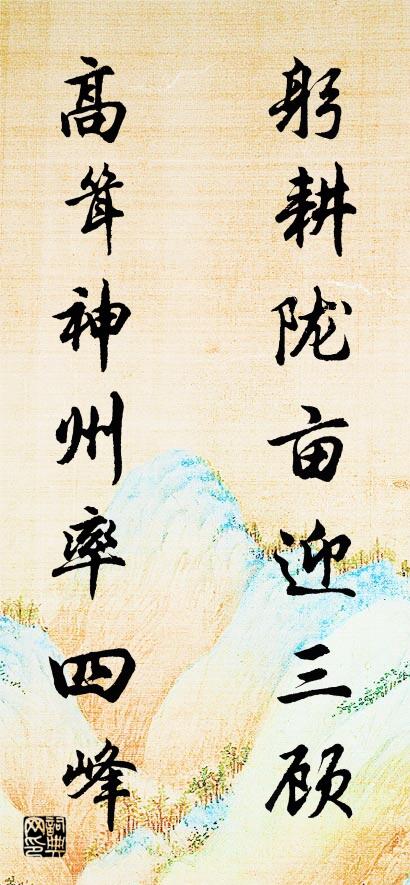 躬耕陇亩迎三顾
高耸神州率四峰
词典网印